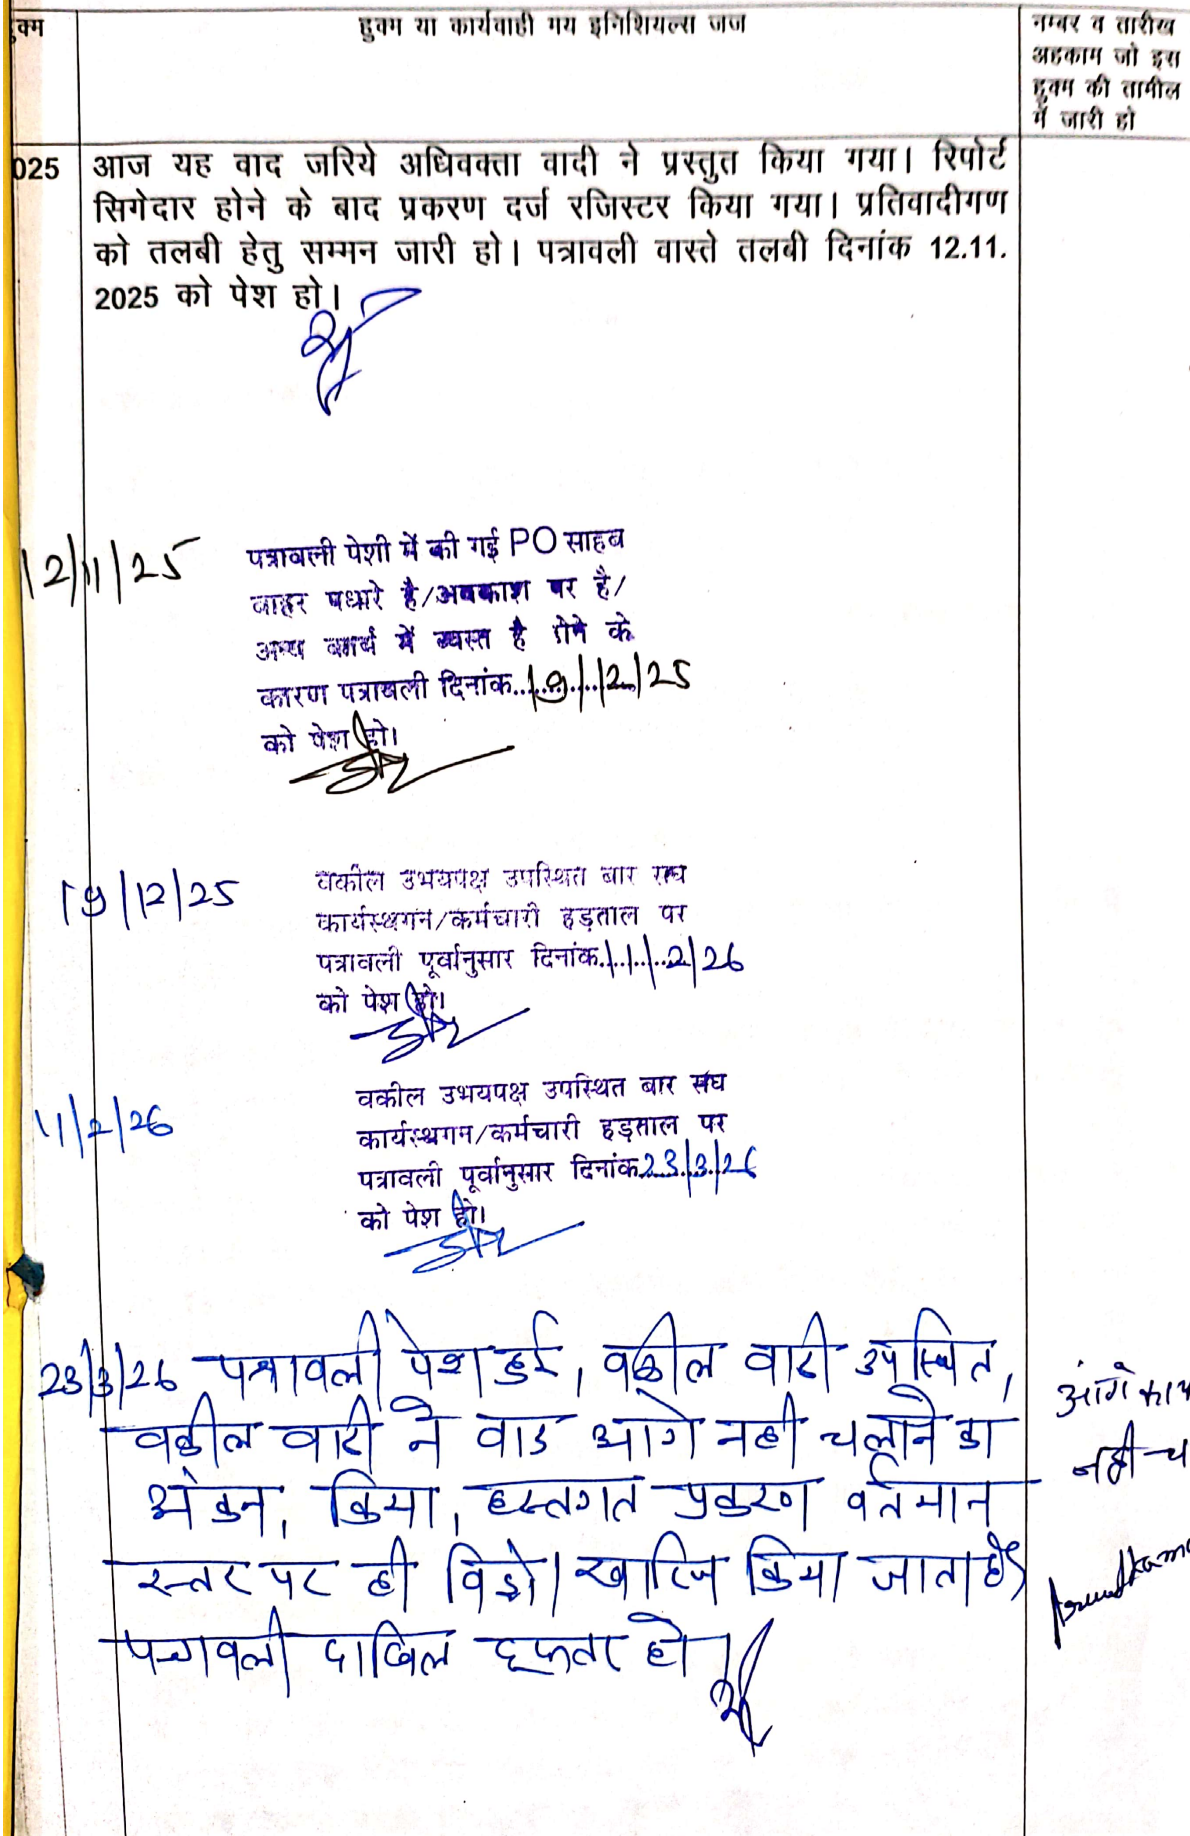 हुक्म
हुक्म या कार्यवाही मय इनिशियल्स जज
नम्बर व तारीख
अहकाम जो इस
हुक्म की तामील
में जारी हो
025
आज यह वाद जरिये अधिवक्ता वादी ने प्रस्तुत किया गया। रिपोर्ट
सिगेदार होने के बाद प्रकरण दर्ज रजिस्टर किया गया। प्रतिवादीगण
को तलबी हेतु सम्मन जारी हो। पत्रावली वास्ते तलबी दिनांक 12.11.
2025 को पेश हो।
12/11/25
पत्रावली पेशी में की गई PO साहब
बाहर पधारे है/अवकाश पर है/
अन्य कार्य में व्यस्त है होने के
कारण पत्रावली दिनांक..19/12/25
को पेश हो।
19/12/25
वकील उभयपक्ष उपस्थित बार संघ
कार्यस्थगन/कर्मचारी हड़ताल पर
पत्रावली पूर्वानुसार दिनांक.11/2/26
को पेश हो।
11/2/26
वकील उभयपक्ष उपस्थित बार संघ
कार्यस्थगन/कर्मचारी हड़ताल पर
पत्रावली पूर्वानुसार दिनांक 23/3/26
को पेश हो।
23/3/26 पत्रावली पेश हुई, वकील वादी उपस्थित,
वकील वादी ने वाद आगे नही चलाने का
किया, हस्तगत प्रकरण वर्तमान
स्तर पर ही खारिज किया जाता है
पत्रावली दाखिल दफ्तर हो
आगे
नही